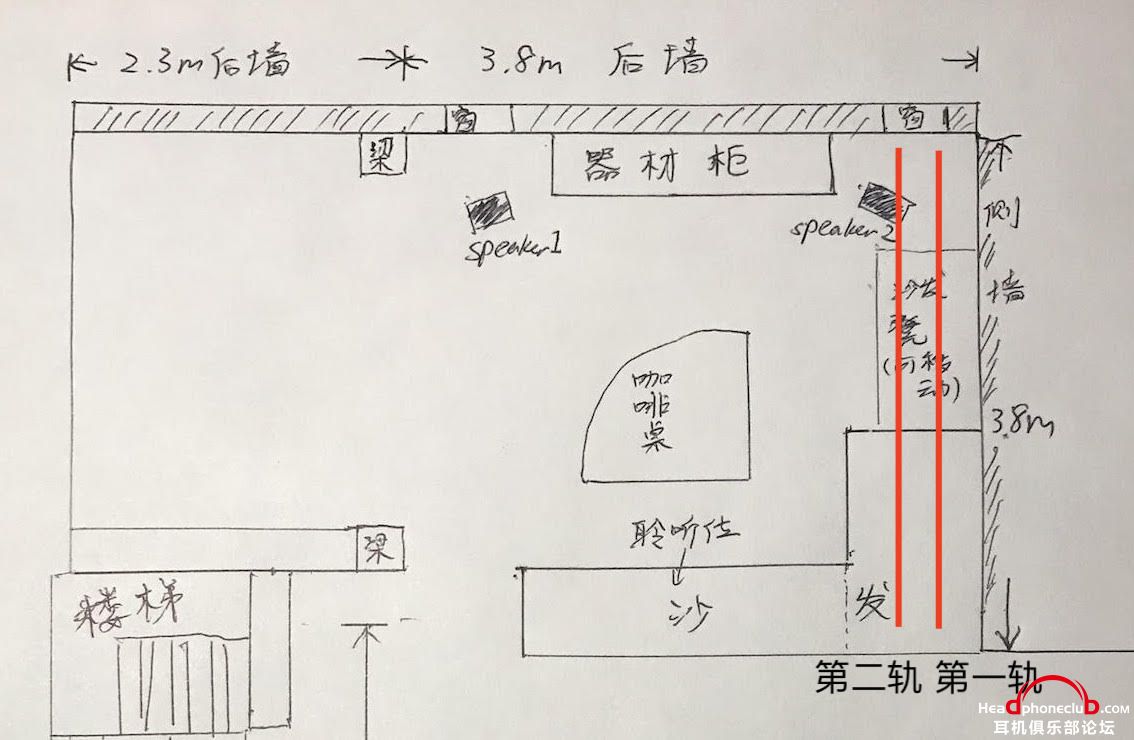 2.3m后墙
3.8m 后墙
窗
窗
梁
器材柜
speaker1
speaker2
侧墙
沙发凳
(可移动)
咖啡桌
3.8m
梁
聆听位
楼梯
沙
发
第二轨 第一轨
Headphoneclub.com
耳机俱乐部论坛